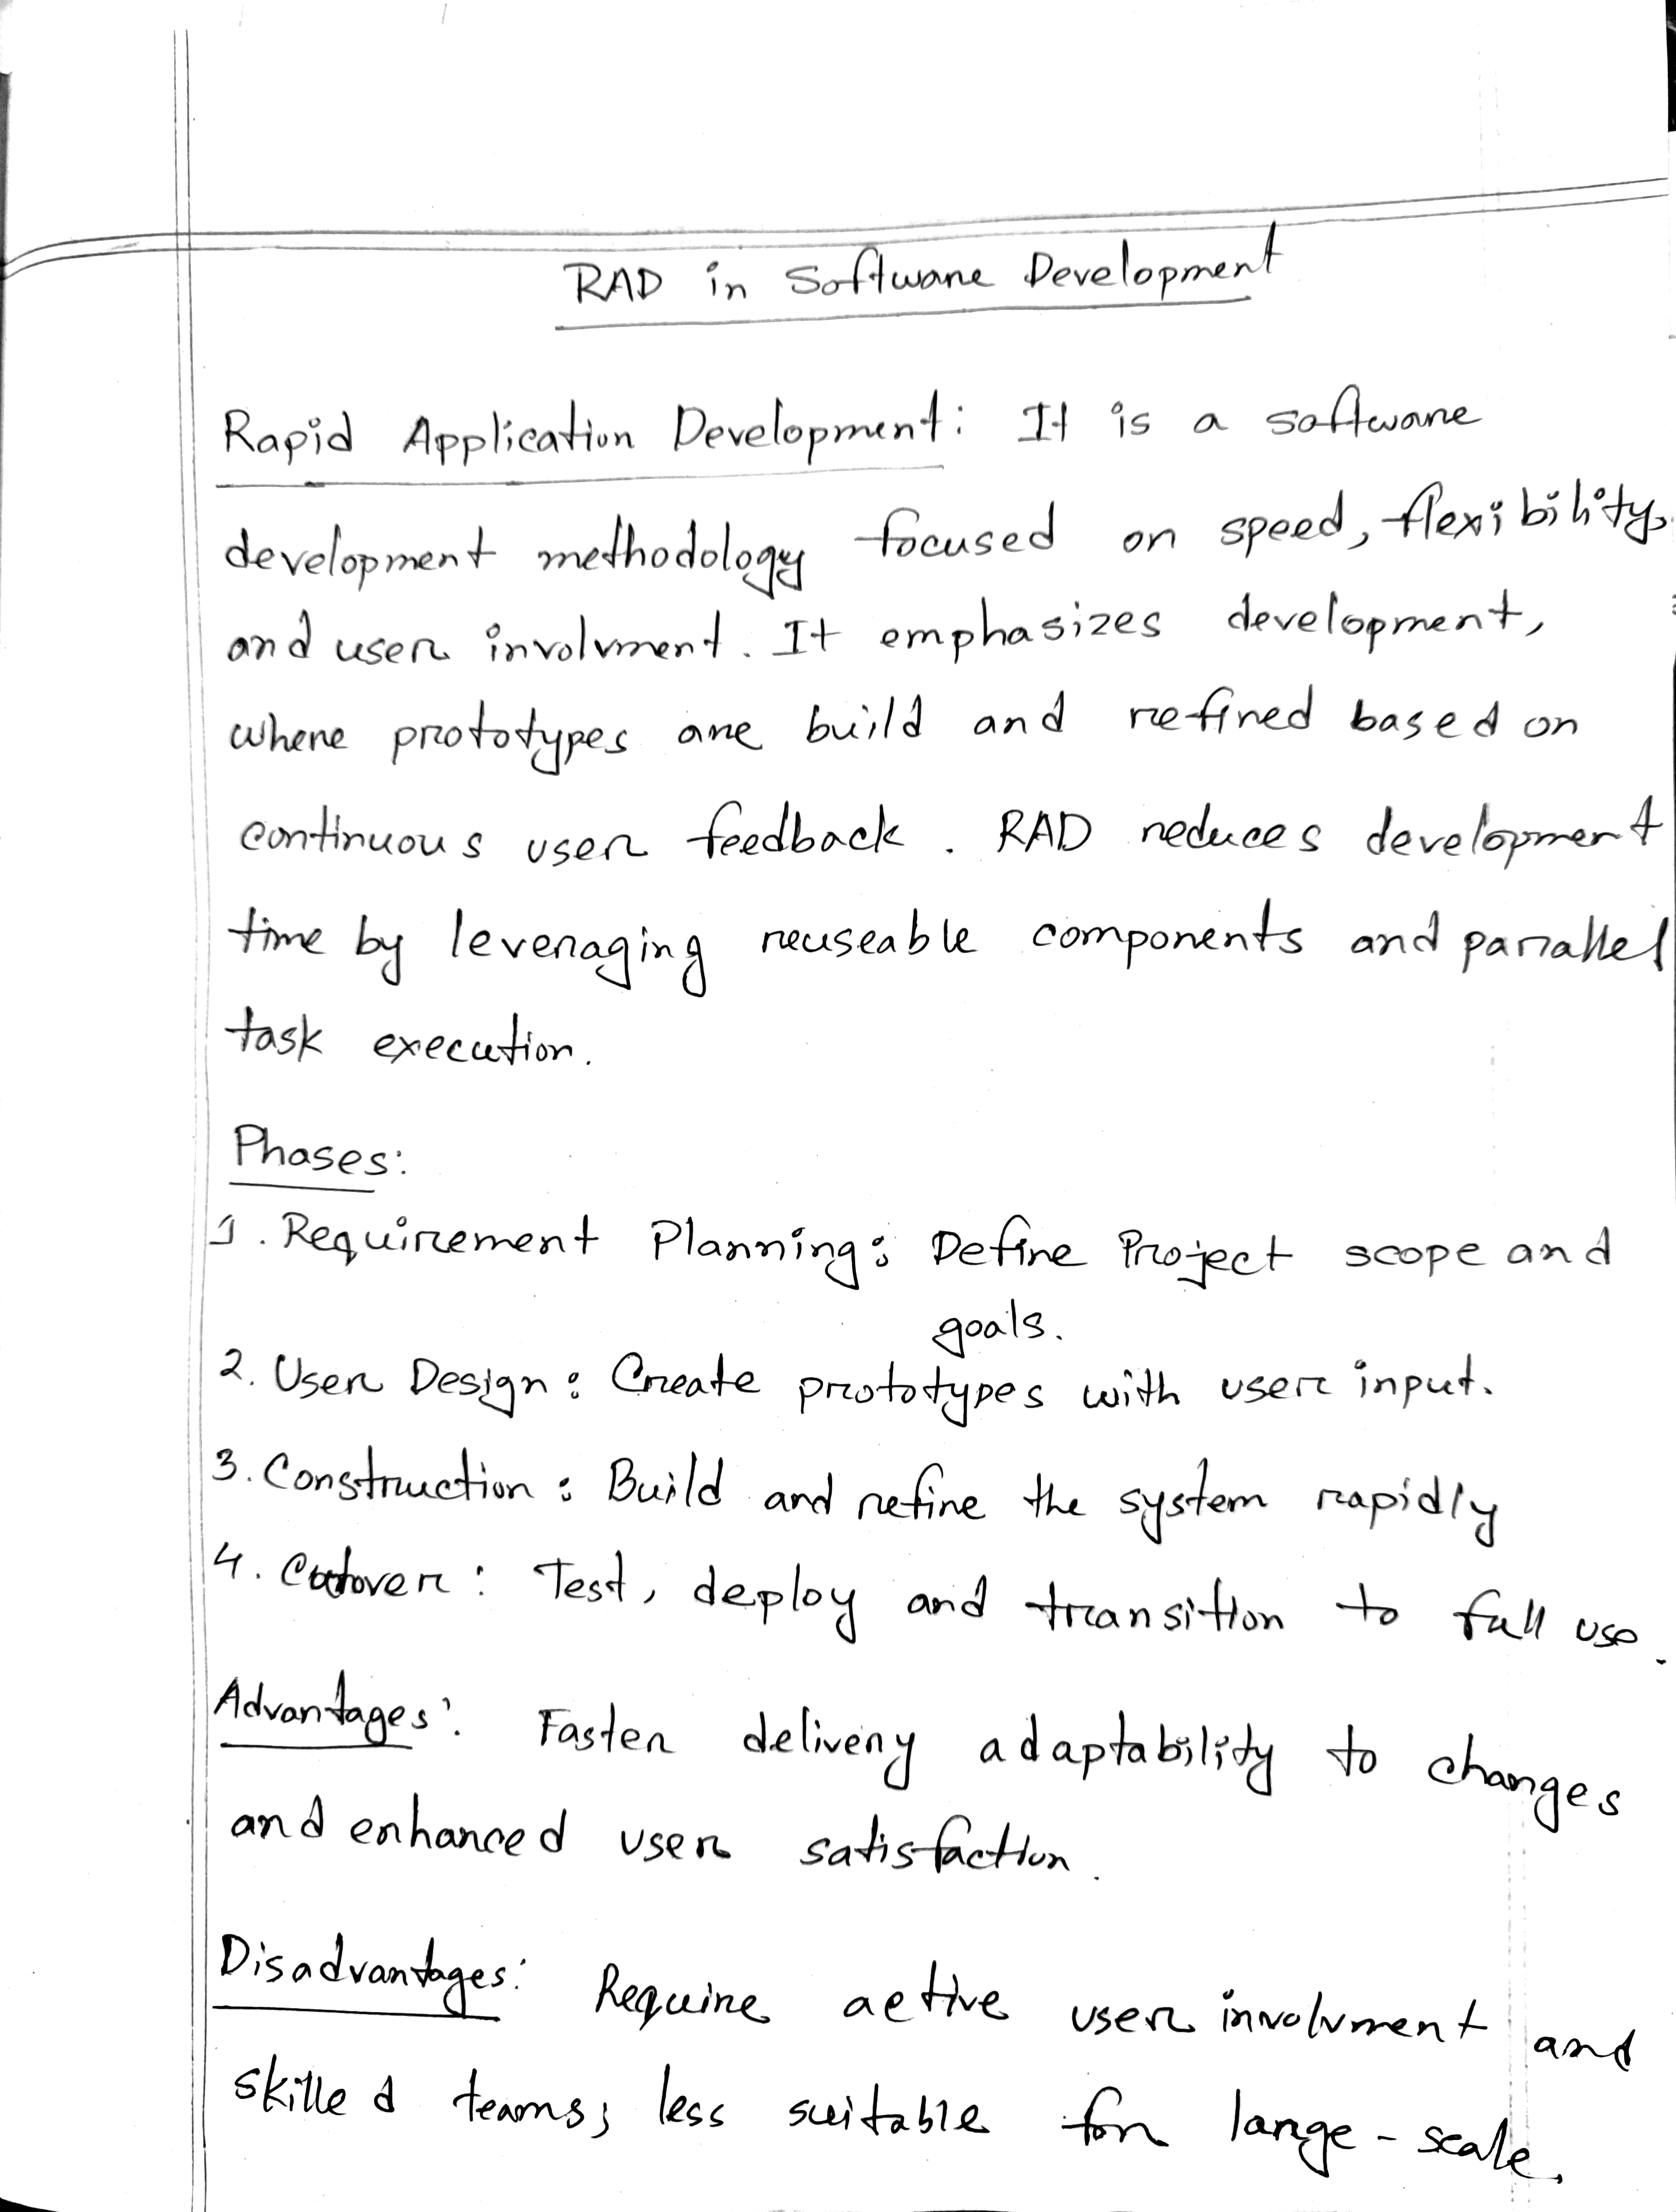 RAD in Software Development
Rapid Application Development: It is a software
development methodology focused on speed, flexibility,
and user involvment. It emphasizes development,
where prototypes are build and refined based on
continuous user feedback. RAD reduces development
time by leveraging reuseable components and parrallel
task execution.
Phases:
1. Requirement Planning: Define Project scope and
goals.
2. User Design: Create prototypes with user input.
3. Construction: Build and refine the system rapidly
4. Cutover: Test, deploy and transition to full use.
Advantages: Faster delivery adaptability to changes
and enhanced user satisfaction.
Disadvantages: Require active user involvment and
skilled teams; less suitable for large-scale.